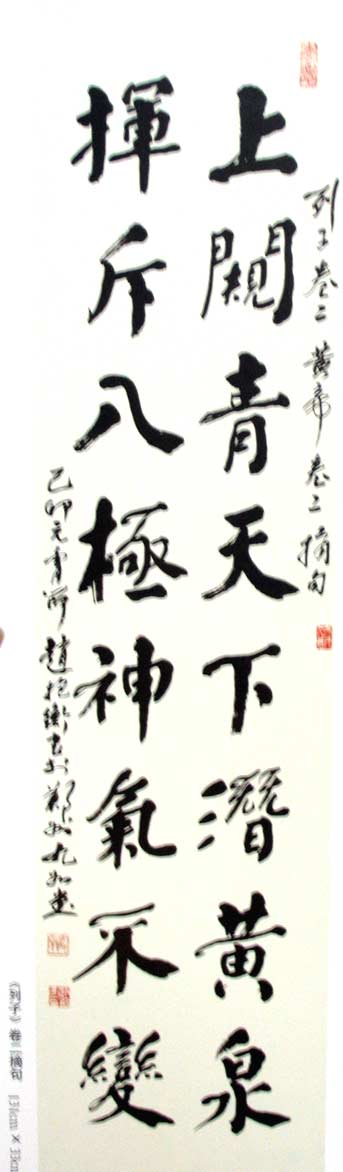 列子卷二黃帝卷二摘句
上闚青天下潛黃泉
揮斥八極神氣不變
己卯元宵 趙抱衡書於鄭州九如堂
《列子》卷二摘句 131cm × 33cm